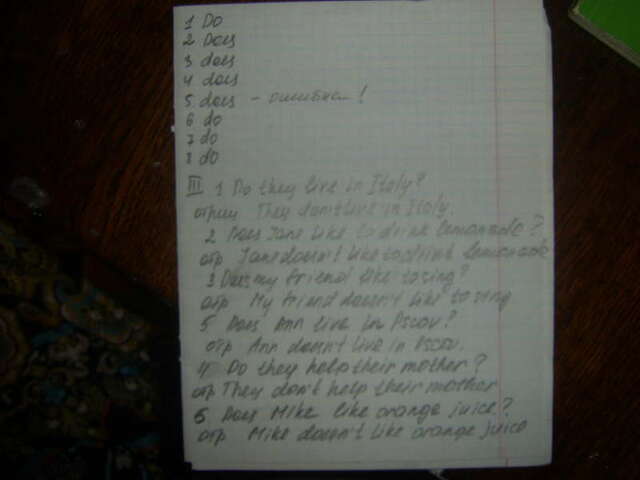 1 Do
2 Does
3 does
4 does
5 does - ошибка!
6 do
7 do
8 do
III 1 Do they live in Italy?
отриц They don't live in Italy.
2 Does Jane like to drink lemonade?
отр Jane doesn't like to drink lemonade
3 Does my friend like to sing?
отр My friend doesn't like to sing
5 Does Ann live in Pscov?
отр Ann doesn't live in Pscov.
4 Do they help their mother?
отр They don't help their mother
6 Does Mike like orange juice?
отр Mike doesn't like orange juice